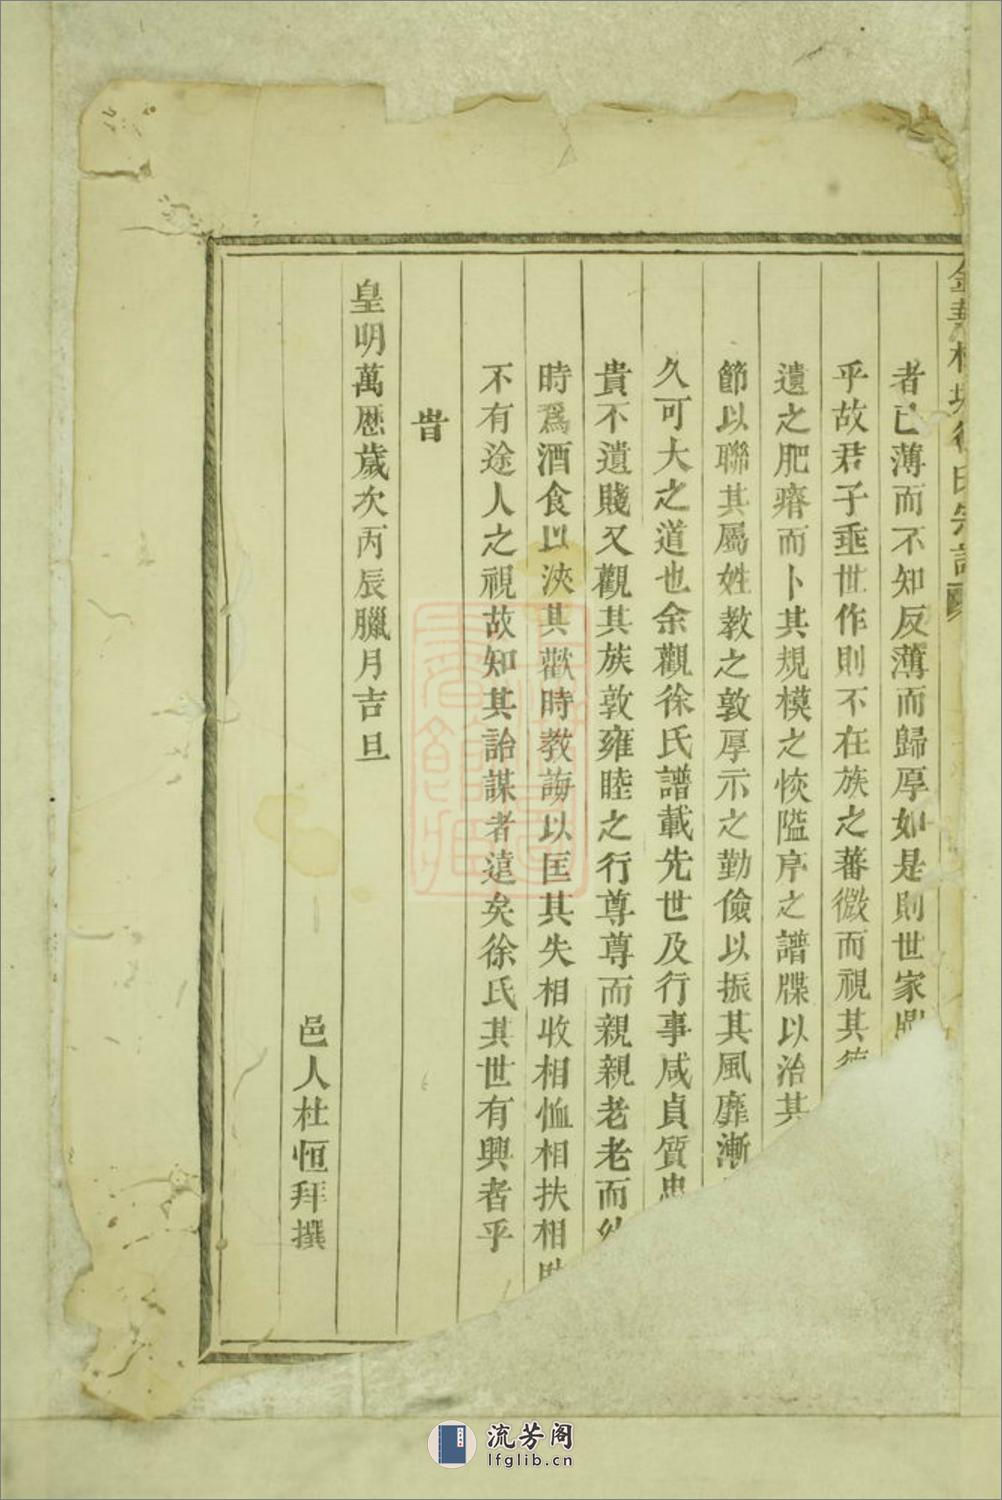 者已薄而不知反薄而歸厚如是則世家
乎故君子垂世作則不在族之蕃微而視其
遺之肥瘠而卜其規模之恢隘序之譜牒以治其
節以聯其屬姓教之敦厚示之勤儉以振其風靡漸
久可大之道也余觀徐氏譜載先世及行事咸貞質忠
貴不遺賤又觀其族敦雍睦之行尊尊而親親老老而
時爲酒食以浹其歡時教誨以匡其失相收相恤相扶相
不有途人之視故知其詒謀者遠矣徐氏其世有興者乎
旹
皇明萬歷歲次丙辰臘月吉旦
邑人杜恒拜撰
流芳阁
lfglib.cn